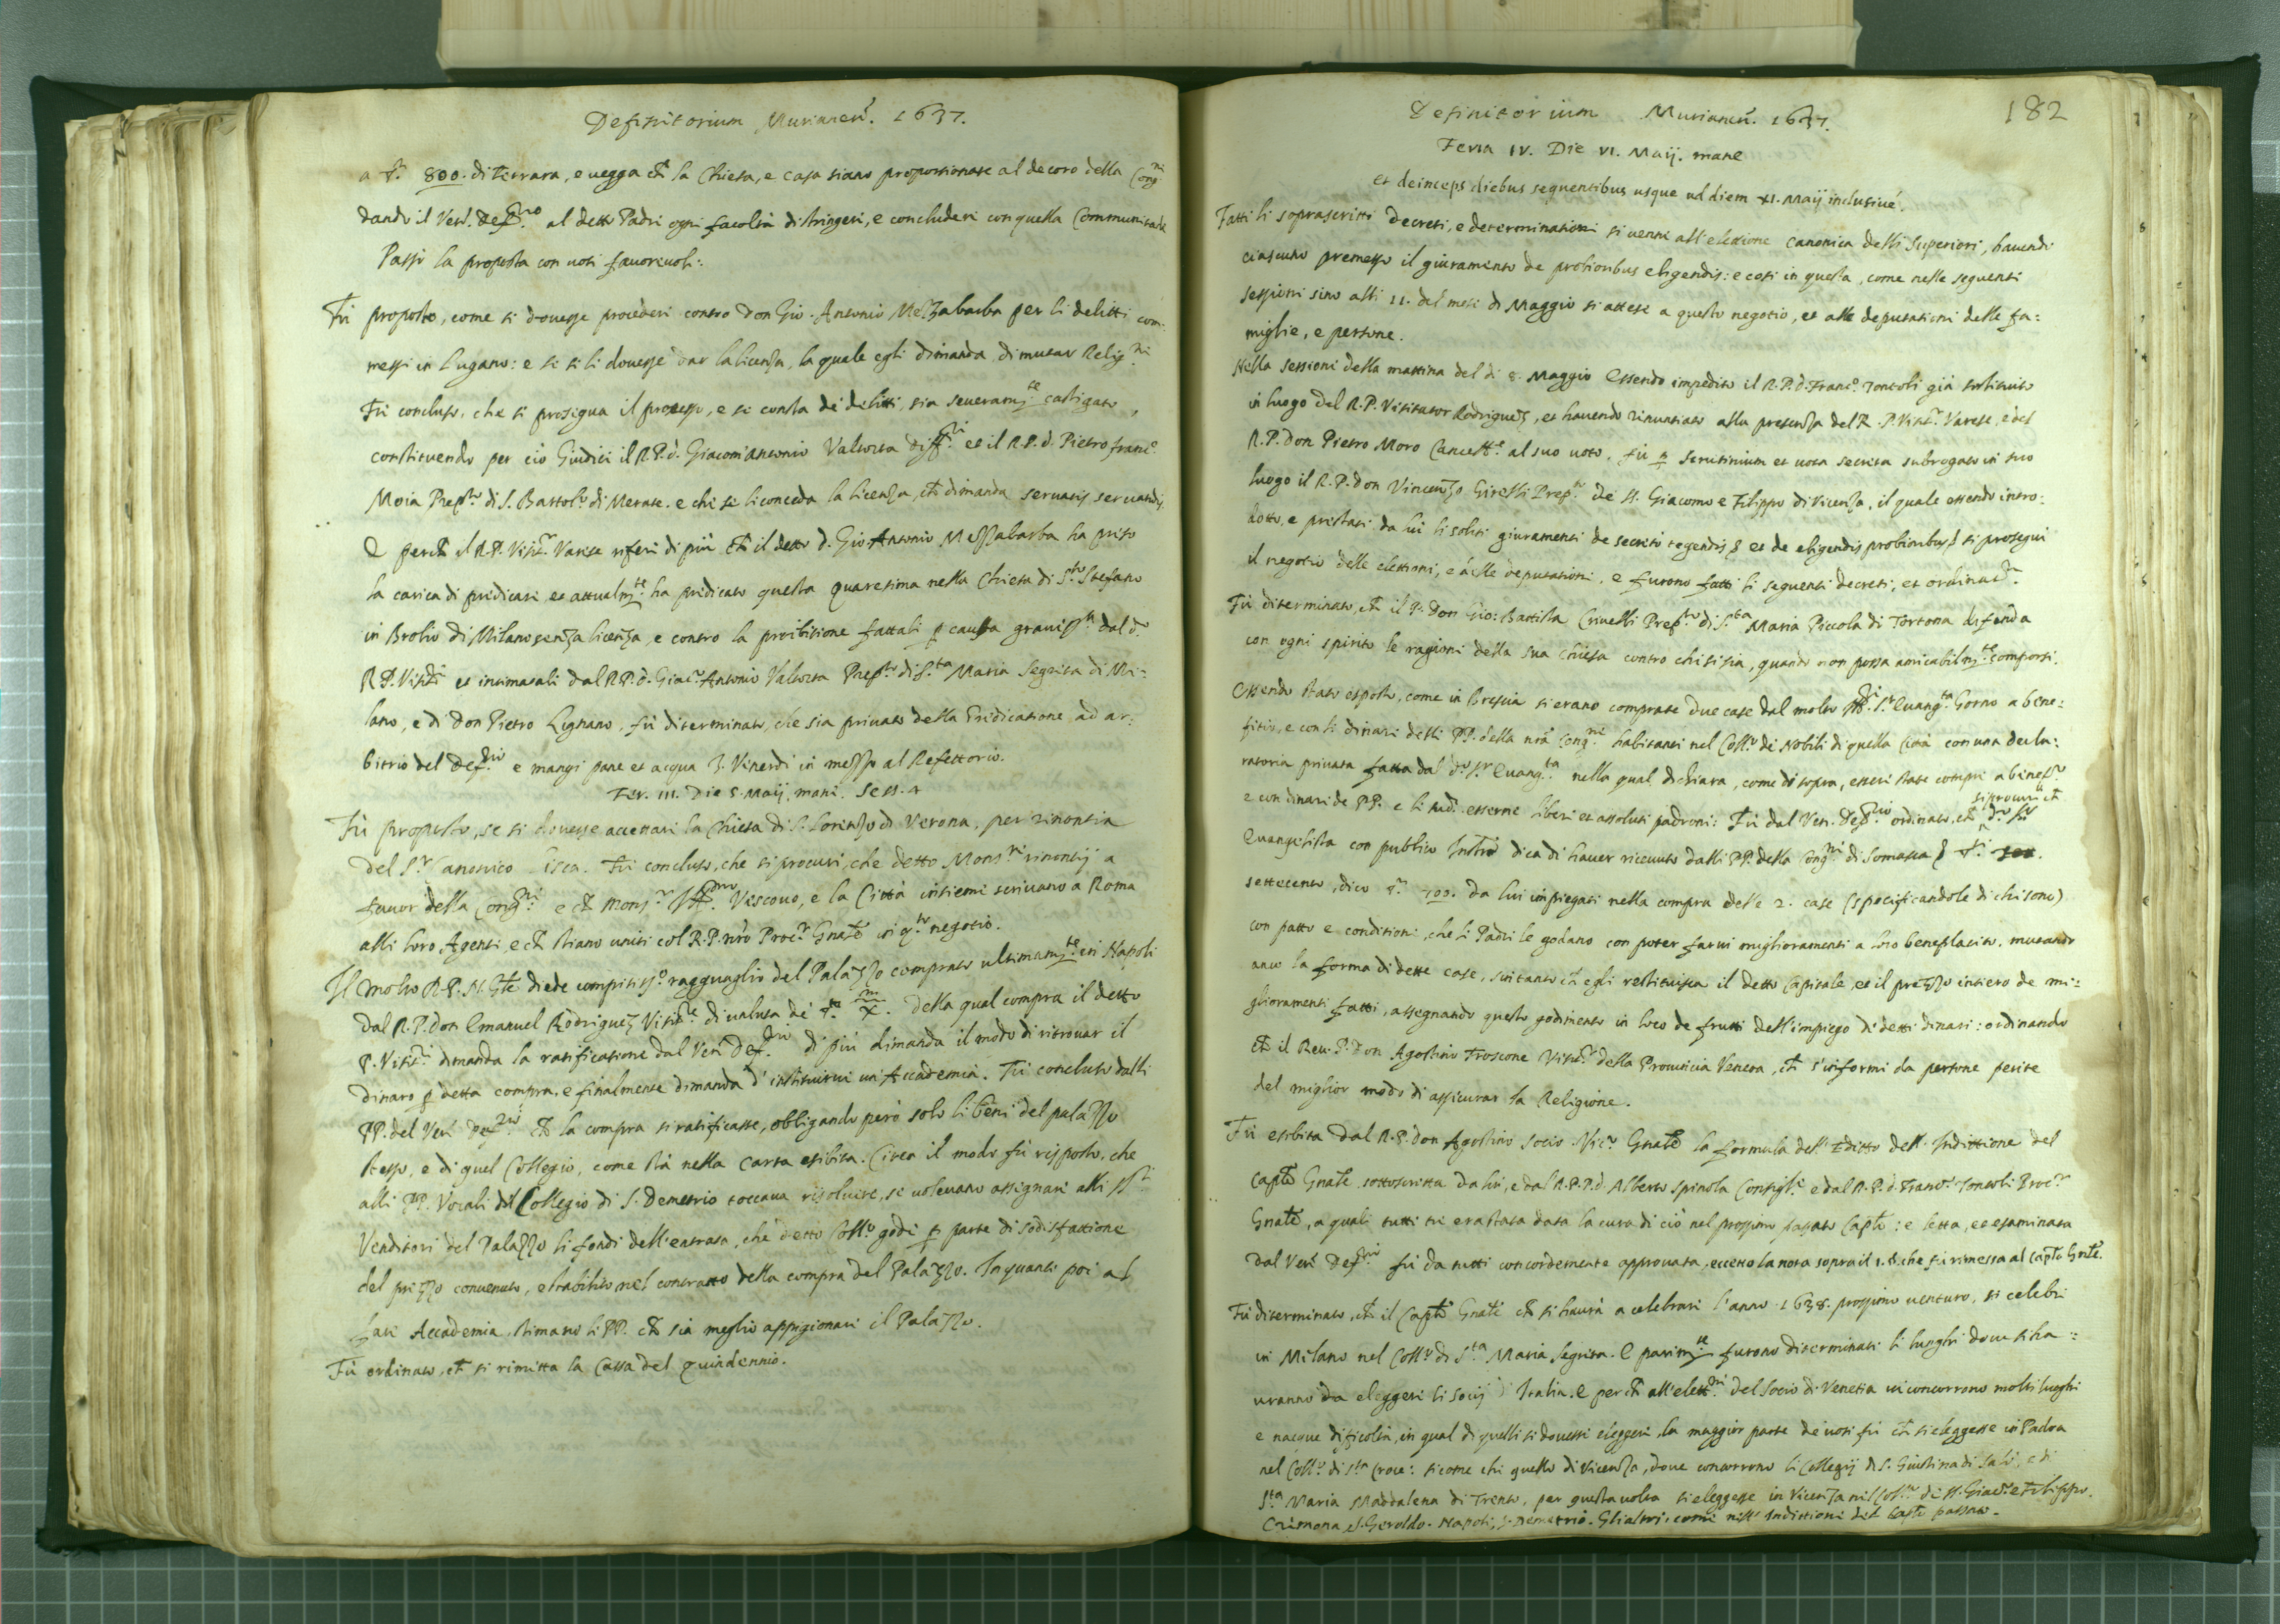 Definitorium Murianen. 1637.
a ₮. 800. di Ferrara, e uegga ch̃ la Chiesa, e casa siano proportionate al decoro della Congni
dando il Ven. Deffrio al detto Padri ogni facoltà di stringere, e concludere con quella Communitade
Passò la proposta con uoti fauoreuoli:
Fù proposto, come si douesse procedere contro Don Gio. Antonio Mezzabarba per li delitti com:
messi in Lugano: e se se li douesse dar la licenza, la quale egli dimanda, di mutar Relig.ne
Fù concluso, che si prosegua il processo, e se consta de delitti, sia seueramte castigato,
constituendo per ciò Giudici il R.P.d. Giacom'Antonio Valtorta Diff.ri et il R.P.d. Pietro Franc.o
Moia Prep.to di S. Bartol.o di Merate. e che se li conceda la licenza, ch̃ dimanda seruatis seruandis.
E perch̃ il R.P. Visit.r Varese riferì di più ch̃ il detto d. Gio Antonio Mezzabarba ha preso
la carica di predicare et attualmte ha predicato questa Quaresima nella Chiesa di S.to Stefano
in Brolio di Milano senza licenza, e contro la proibitione fattali p̱ causa grauiss.a dal d.o
R.P. Visit.r et intimatali dal R.P.d. Giac.o Antonio Valtorta Prep.to di S.ta Maria Segreta di Mi:
lano, e di Don Pietro Lignano, fù determinato, che sia priuato della Predicatione ad ar:
bitrio del Deff.rio e mangi pane et acqua 3. Venerdi in mezzo al Refettorio.
Fer. III. Die 5. Maij. mane. Sess. 4
Fù proposto, se si douesse accettare la Chiesa di S. Lorenzo di Verona, per rinontia
del S.r Canonico Lisca. Fù concluso, che si procuri, che detto Mons.r rinontij a
fauor della Cong.ne e ch̃ Mons.r Vescouo, e la Città insieme scriuano a Roma
alli loro Agenti, e ch̃ stiano uniti col R.P. nr̃o Proc.r Gñale in q.to negotio.
Il molto R.P. N. Gñle diede compitiss.o ragguaglio del Palazzo comprato ultimamte in Napoli
dal R.P. Don Emanuel Rodriguez Visit.re di ualuta de ₮. X.m della qual compra il detto
P. Visit.r dimanda la ratificatione dal Ven Def.rio di più dimanda il modo di ritrouar il
dinaro p̱ detta compra. e finalmente dimanda d' instituirui un'Accademia. Fù concluso dalli
PP. del Ven Def.rio ch̃ la compra si ratificasse, obligando però solo li beni del palazzo
stesso, e di quel Collegio, come stà nella carta esibita. Circa il modo fù risposto, che
alli PP. Vocali del Collegio di S. Demetrio toccaua risoluere, se uoleuano assignare alli SS.ri
Venditori del Palazzo li fondi dell'entrata, che detto Coll.o gode p̱ parte di sodisfattione
del prezzo conuenuto, e stabilito nel contratto della compra del Palazzo. In quanto poi al
fare Accademia, stimano li PP. ch̃ sia meglio appigionare il Palazzo.
Fù ordinato, ch̃ si rimetta la Cassa del Quindennio.
182
Definitorium Murianen. 1637.
Feria IV. Die VI. Maij. mane
et deinceps diebus sequentibus usque ad diem XI. Maij inclusiue.
Fatti li soprascritti decreti, e determinationi si uenne all'elettione canonica delli Superiori, hauendo
ciascuno premesso il giuramento de probioribus eligendis: e così in questa, come nelle seguenti
sessioni sino alli 11. del mese di Maggio si attese a questo negotio, et alle deputationi delle fa:
miglie, e persone.
Nella sessione della mattina del dì 8. Maggio essendo impedito il R.P.d. Franc.o Toncoli già sostituito
in luogo del R.P. Visitator Rodriguez, et hauendo rinuntiato alla presenza del R.P. Visit.r Varese, e del
R.P. Don Pietro Moro Cancell.e al suo uoto, fù p̱ scrutinium et uota secreta subrogato in suo
luogo il R.P. Don Vincenzo Girelli Prep.to de SS. Giacomo e Filippo di Vicenza, il quale essendo intro:
dotto, e prestati da lui li soliti giuramenti de secreto tegendis et de eligendis probioribus si proseguì
il negotio delle elettioni, e delle deputationi, e furono fatti li seguenti decreti, et ordinat.ni
Fù determinato, ch̃ il P. Don Gio: Battista Criuelli Prep.to di S.ta Maria Piccola di Tortona difenda
con ogni spirito le ragioni della sua chiesa contro chi si sia, quando non possa amicabilmte comporsi.
Essendo stato esposto, come in Brescia si erano comprate due case dal molto S.r Euang.ta Gorno a bene:
fitio, e con li dinari delli PP. della nr̃a Cong.ne habitanti nel Coll.o de Nobili di quella Città con una decla:
ratoria priuata fatta dal d.o S.r Euang.ta nella qual dichiara, come di sopra, essere state compre a benef.o
e con dinari de PP. e li med. esserne liberi et assoluti padroni: Fù dal Ven. Def.rio ordinato, ch̃ si procuri ch̃ d.o S.r
Euangelista con publico Instr̃o dica di hauer riceuuto dalli PP. della Cong.ne di Somasca
settecento, dico ₮. 700. da lui impiegati nella compra delle 2. case (specificandole di chi sono)
con patto e conditione, che li Padri le godano con poter farui miglioramenti a loro beneplacito, mutando
anco la forma di dette case, sin tanto ch̃ egli restituisca il detto Capitale, et il prezzo intiero de mi:
glioramenti fatti, assegnando questo godimento in loco de frutti dell'impiego di detti dinari: ordinando
ch̃ il Reu. P. Don Agostino Froscone Visit.r della Prouincia Veneta, ch̃ s'informi da persone perite
del miglior modo di assicurar la Religione.
Fù esibita dal R.P. don Agostino Socio Vic.o Gñale la formula dell'Editto dell'Indittione del
Cap̃lo Gñale sottoscritta da lui, e dal R.P.d Alberto Spinola Consigl.e e dal R.P.d. Franc.o Toncoli Proc.r
Gñale, a quali tutti tre era stata data la cura di ciò nel prossimo passato Cap̃lo: e letta, et esaminata
dal Ven Def.rio fù da tutti concordemente approuata, eccetto la nota sopra il 1. §. che fù rimessa al Cap̃lo Gñle.
Fù determinato, ch̃ il Cap̃lo Gñale ch̃ si haurà a celebrare l'anno 1638. prossimo uenturo, si celebri
in Milano nel Coll.o di S.ta Maria Segreta. E parimte furono determinati li luoghi doue si ha:
uranno da eleggere li Socij d'Italia. E perch̃ all'elett.ne del Socio di Venetia ui concorrono molti luoghi
e nacque dificoltà, in qual di quelli si douesse eleggere, la maggior parte de uoti fù ch̃ si eleggesse in Padoa
nel Coll.o di S.ta Croce: sicome ch̃ quello di Vicenza, doue concorrono li Collegij di S. Giustina di Salò, e di
S.ta Maria Maddalena di Trento, per questa uolta si eleggesse in Vicenza nel Coll.o de SS. Giac.o e Filippo.
Cremona, S. Geroldo. Napoli, S. Demetrio. Gli altri, come nell'Indittione del Cap̃lo passato.